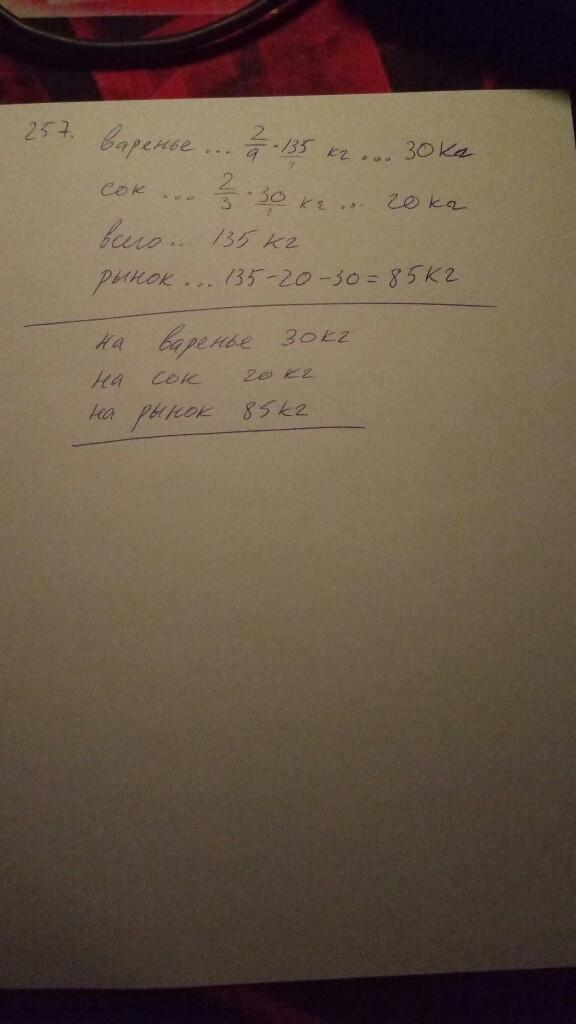 257. варенье ... 2/9 · 135/1 кг ... 30кг
сок ... 2/3 · 30/1 кг ... 20кг
всего .. 135 кг
рынок ... 135-20-30 = 85кг
на варенье 30кг
на сок 20кг
на рынок 85кг